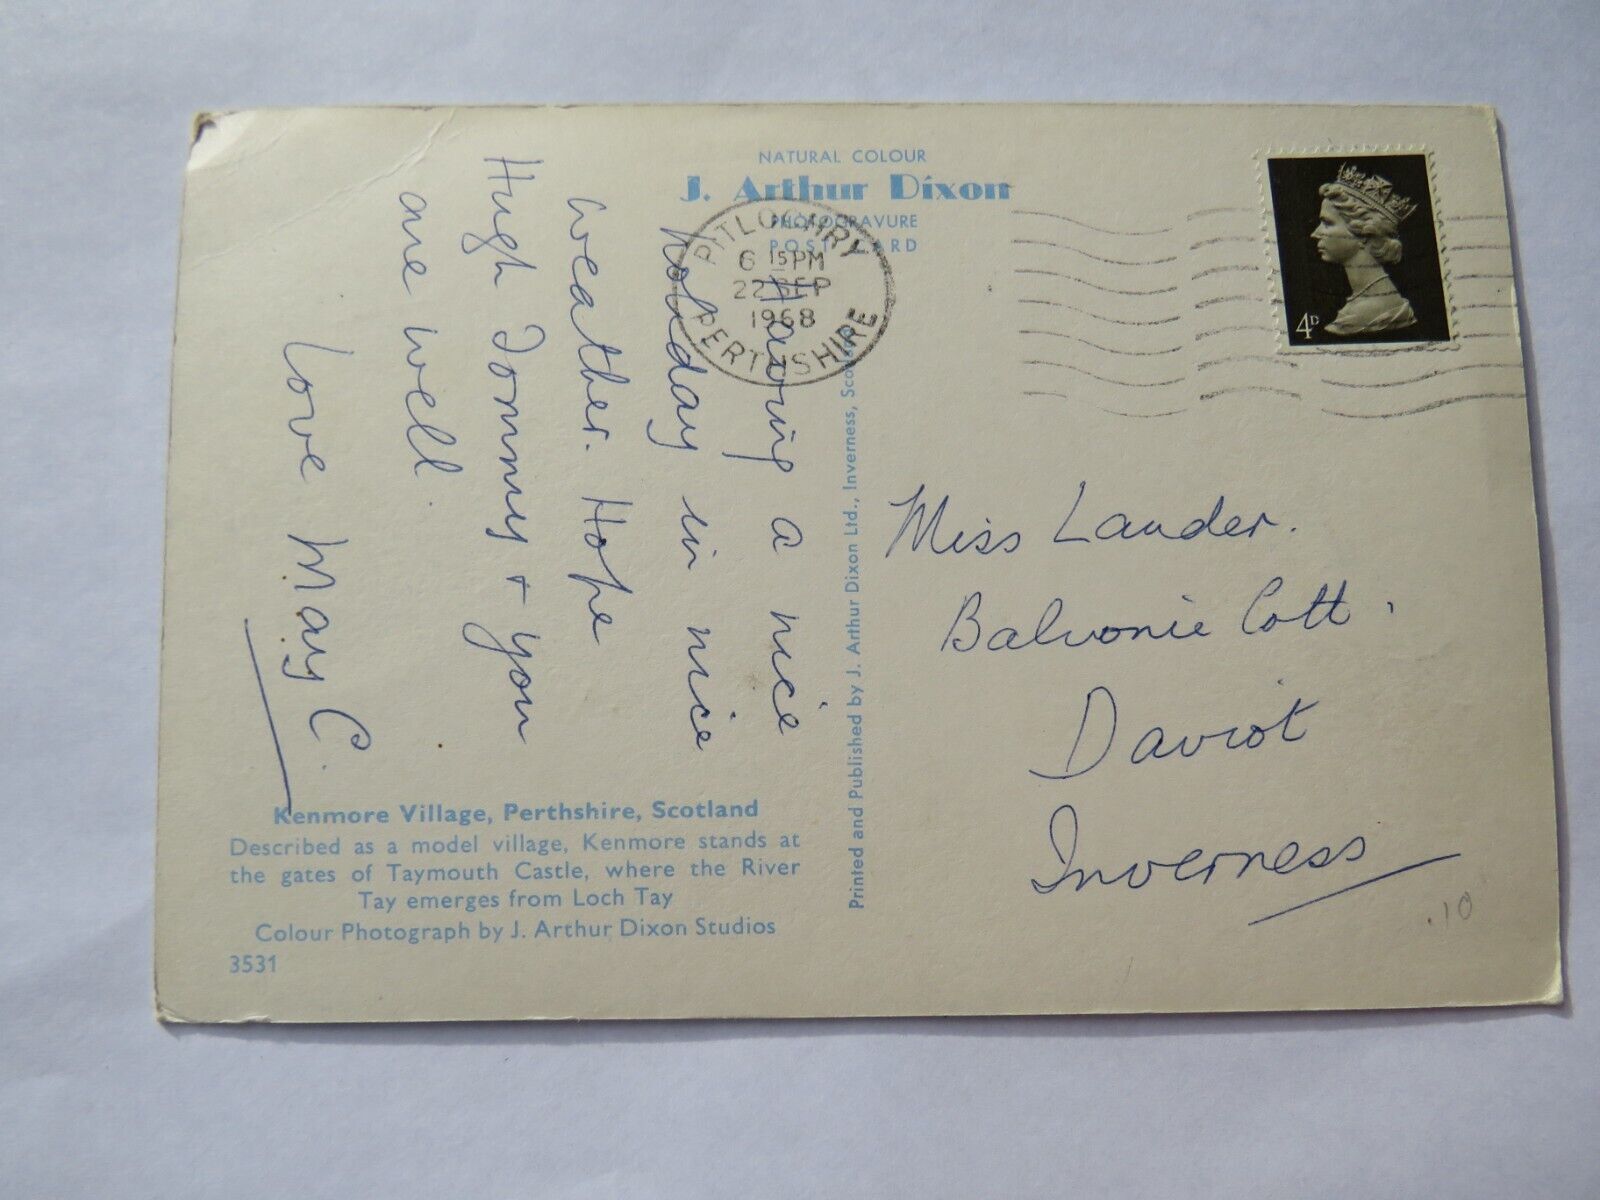 NATURAL COLOUR
J. Arthur Dixon
PHOTOGRAVURE
POST CARD
PITLOCHRY
6 15PM
22 SEP
1968
PERTHSHIRE
4D
Having a nice
holiday in nice
weather. Hope
Hugh Tommy + you
are well.
Love May C.
Kenmore Village, Perthshire, Scotland
Described as a model village, Kenmore stands at
the gates of Taymouth Castle, where the River
Tay emerges from Loch Tay
Colour Photograph by J. Arthur Dixon Studios
3531
Printed and Published by J. Arthur Dixon Ltd., Inverness, Scotland
Miss Lauder.
Balvonie Cott.
Daviot
Inverness
.10